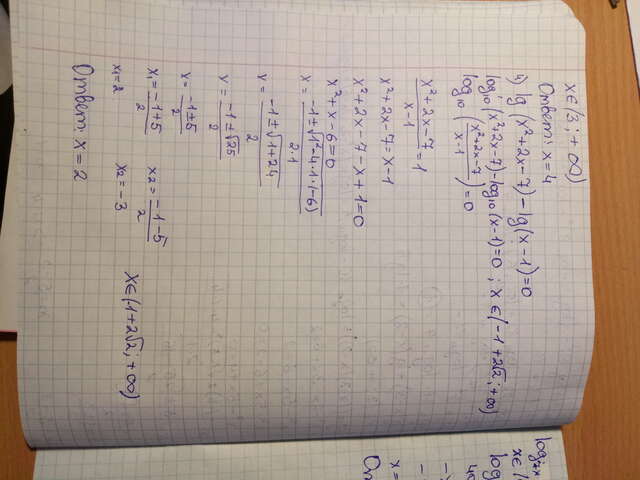 x∈(3;+∞)
Ответ: x=4
4) lg(x²+2x-7)-lg(x-1)=0
log₁₀(x²+2x-7)-log₁₀(x-1)=0; x∈(-1+2√2;+∞)
log₁₀((x²+2x-7)/(x-1))=0
(x²+2x-7)/(x-1)=1
x²+2x-7=x-1
x²+2x-7-x+1=0
x²+x-6=0
x=(-1±√(1²-4·1·(-6)))/(2·1)
x=(-1±√(1+24))/2
x=(-1±√25)/2
x=(-1±5)/2
x₁=(-1+5)/2 x₂=(-1-5)/2
x₁=2 x₂=-3 x∈(-1+2√2;+∞)
Ответ: x=2